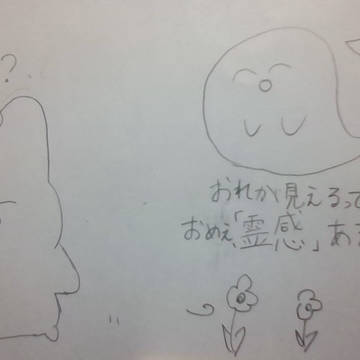 ?
おれが見えるって
おめぇ「霊感」ある